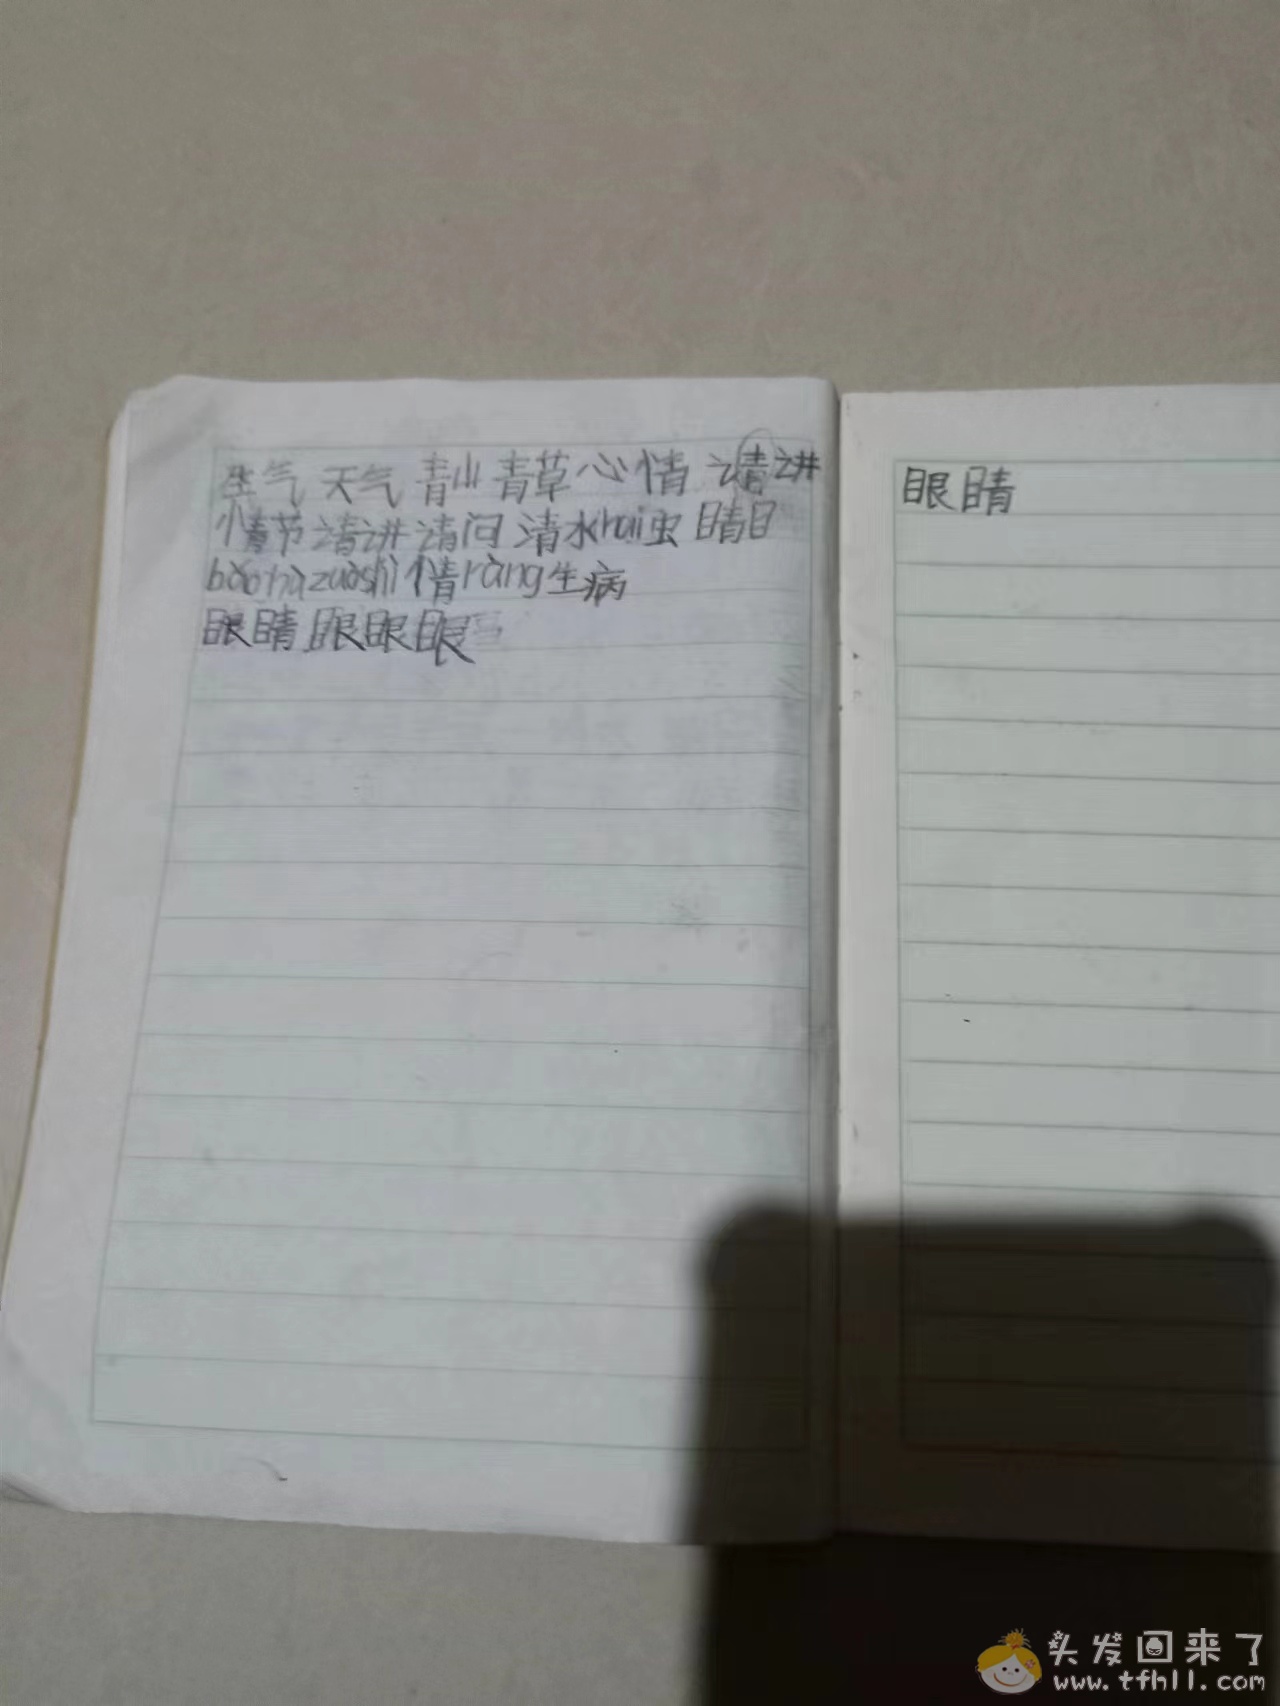 生气 天气 青山 青草 心情 请讲
情节 请讲 请问 清水 hai虫 睛目
baohu zuoshi 情 rang 生病
眼睛 眼眼眼
眼睛
头发回来了
www.tfhll.com